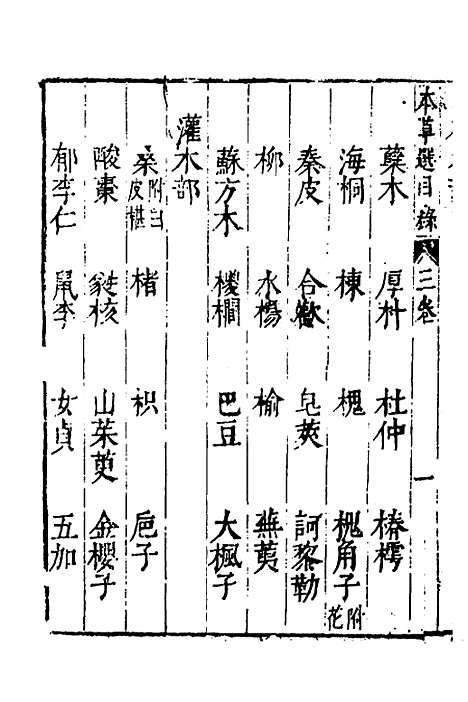 本草選目錄 三卷 一
蘗木 厚朴 杜仲 椿樗
海桐 楝 槐 槐角子附花
秦皮 合歡 皂莢 訶黎勒
柳 水楊 榆 蕪荑
蘇方木 椶櫚 巴豆 大楓子
灌木部
桑附白皮椹 楮 枳 巵子
酸棗 蕤核 山茱萸 金櫻子
郁李仁 鼠李 女貞 五加